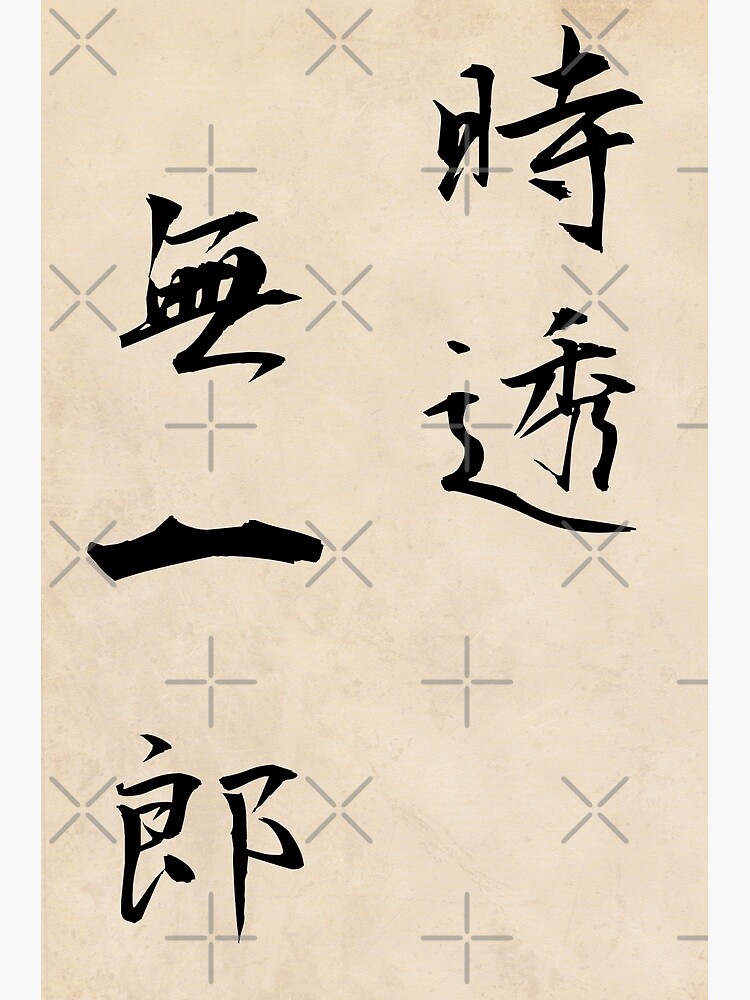 時透
無一郎